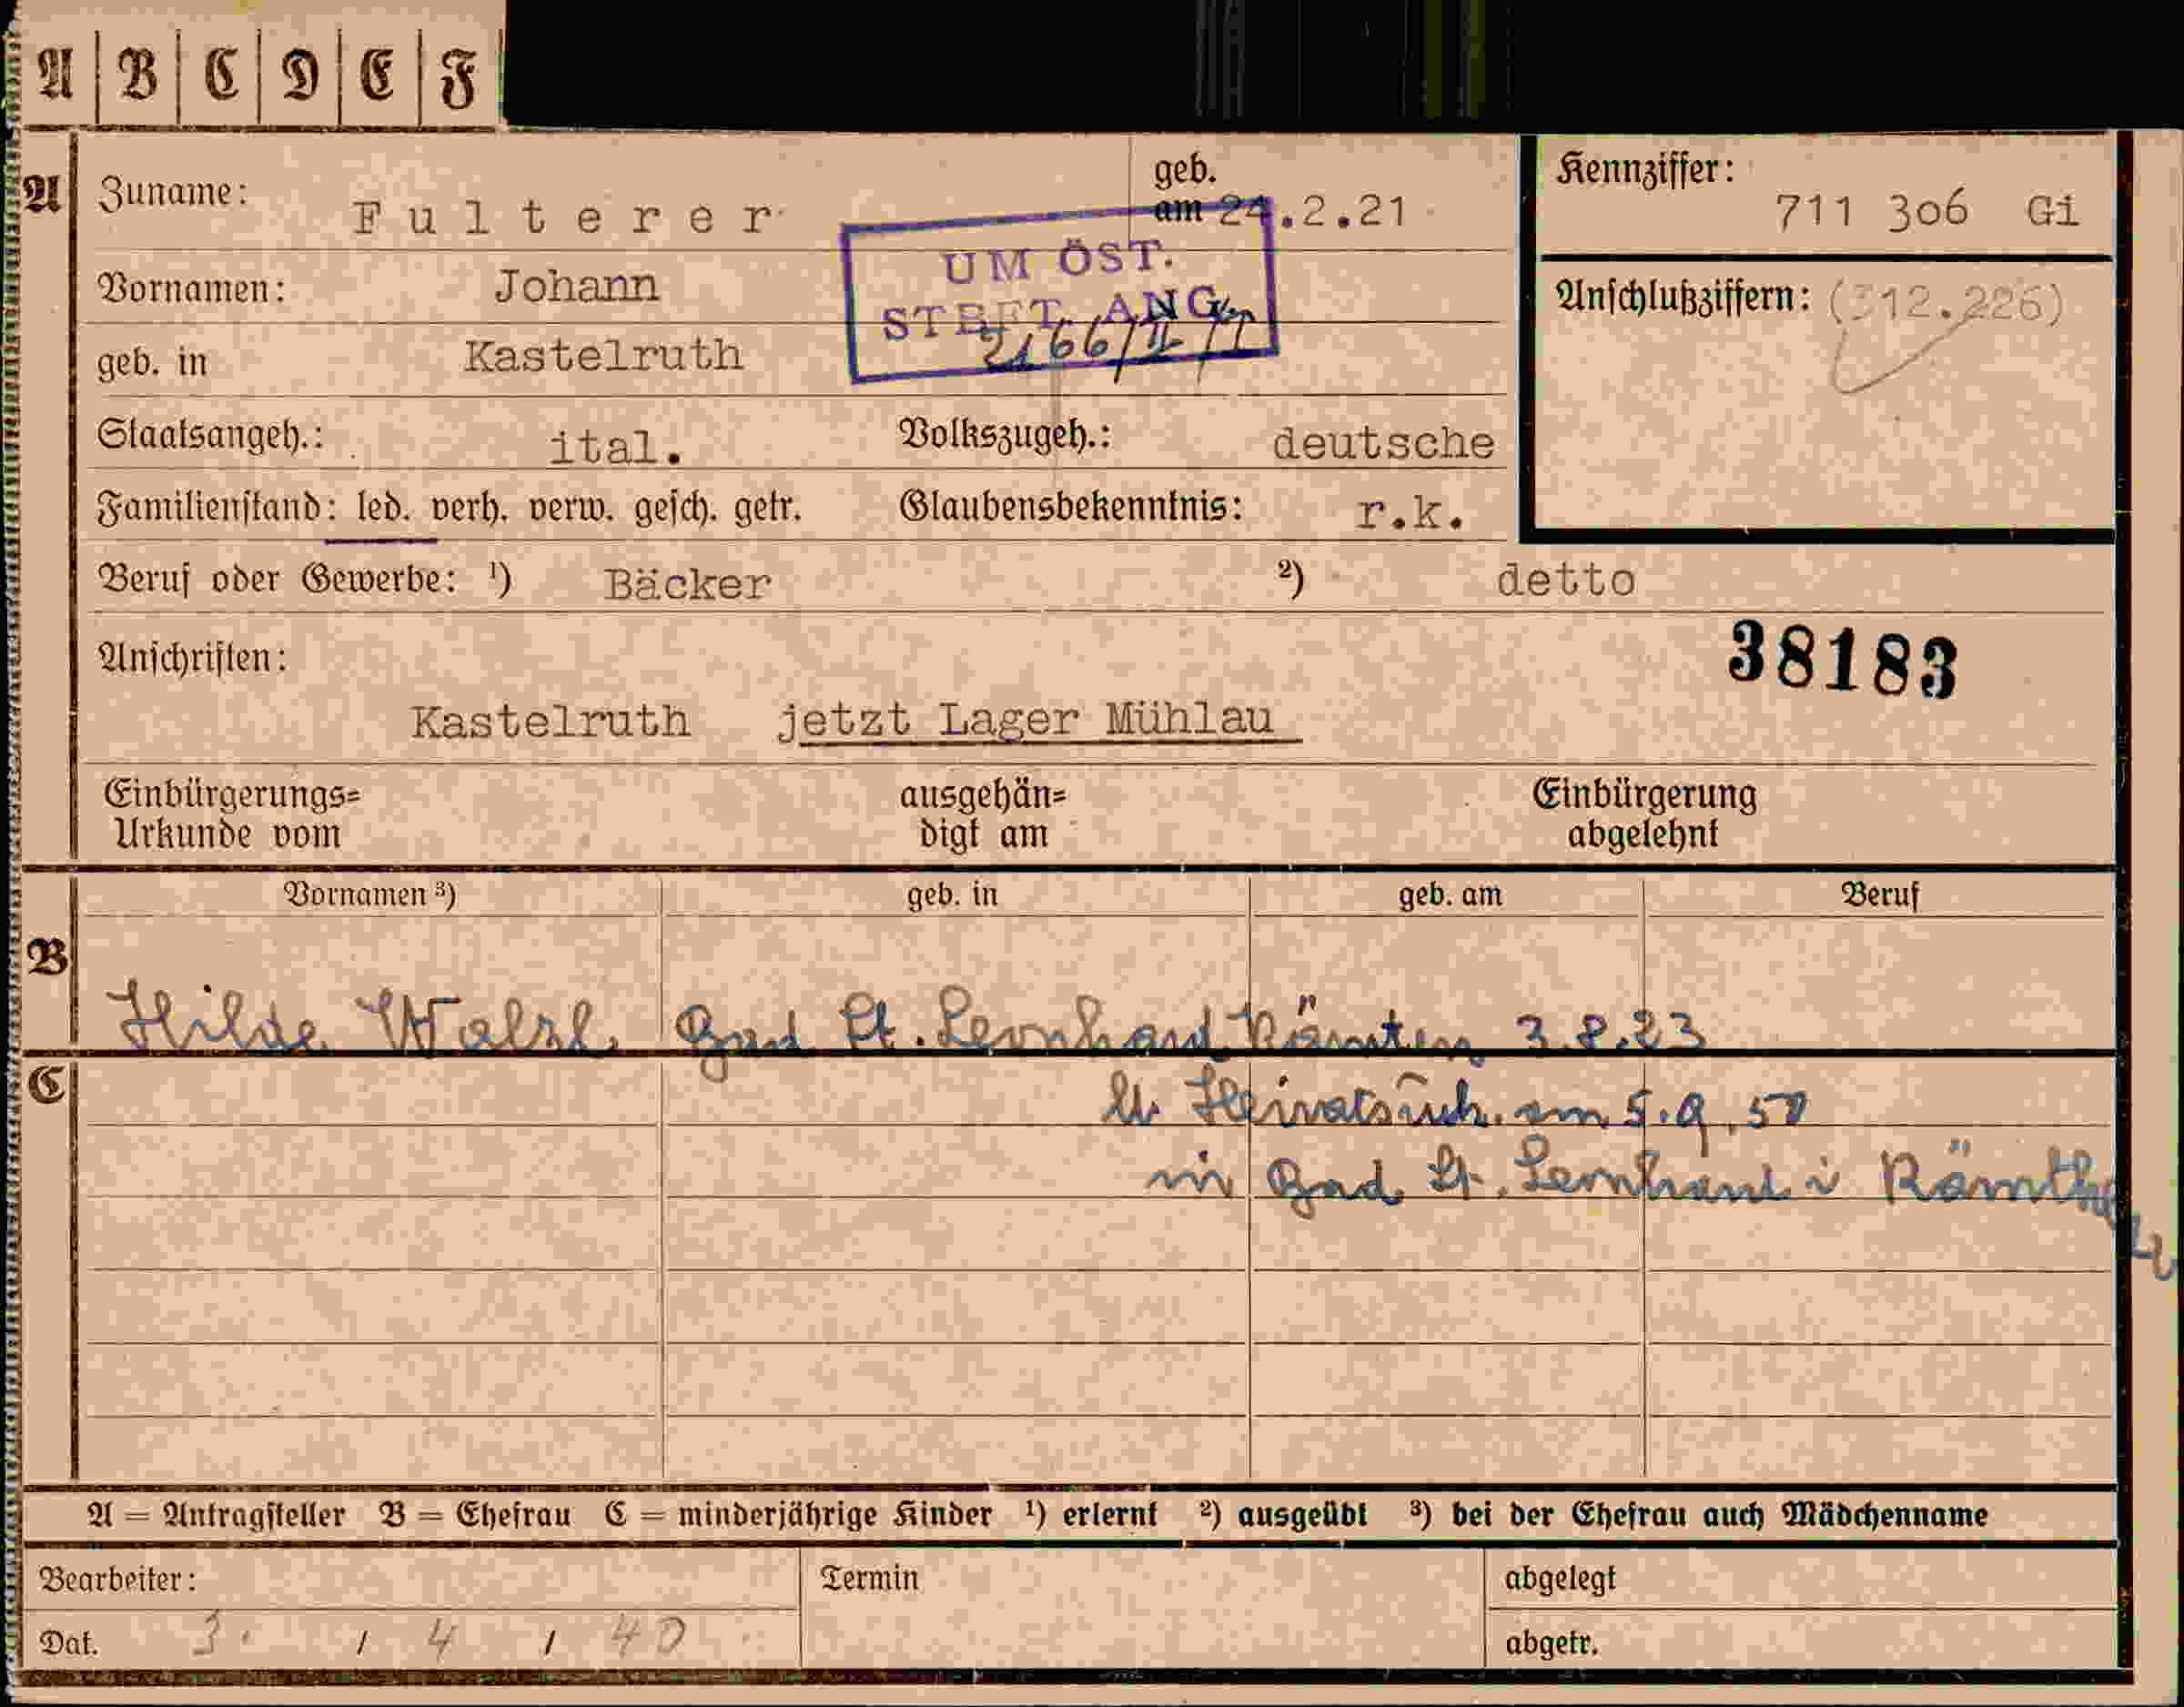 A B C D E F
A
Zuname: Fulterer
geb. am 24.2.21
Kennziffer: 711 306 Gi
Vornamen: Johann
UM ÖST.
ST ANG.
2166/II/
Anschlußziffern: (312.226)
geb. in Kastelruth
Staatsangeh.: ital. Volkszugeh.: deutsche
Familienstand: led. verh. verw. gesch. getr. Glaubensbekenntnis: r.k.
Beruf oder Gewerbe: ¹) Bäcker ²) detto
38183
Anschriften:
Kastelruth jetzt Lager Mühlau
Einbürgerungs= ausgehän= Einbürgerung
Urkunde vom digt am abgelehnt
Vornamen ³) geb. in geb. am Beruf
B
Hilde Bad St. Leonhard Kärnten 3.8.23
C
lt. Heiratsurk. am 5.9.50
in Bad St. Leonhard i
A = Antragsteller B = Ehefrau C = minderjährige Kinder ¹) erlernt ²) ausgeübt ³) bei der Ehefrau auch Mädchenname
Bearbeiter: Termin abgelegt
Dat. 3. / 4 / 40 abgetr.